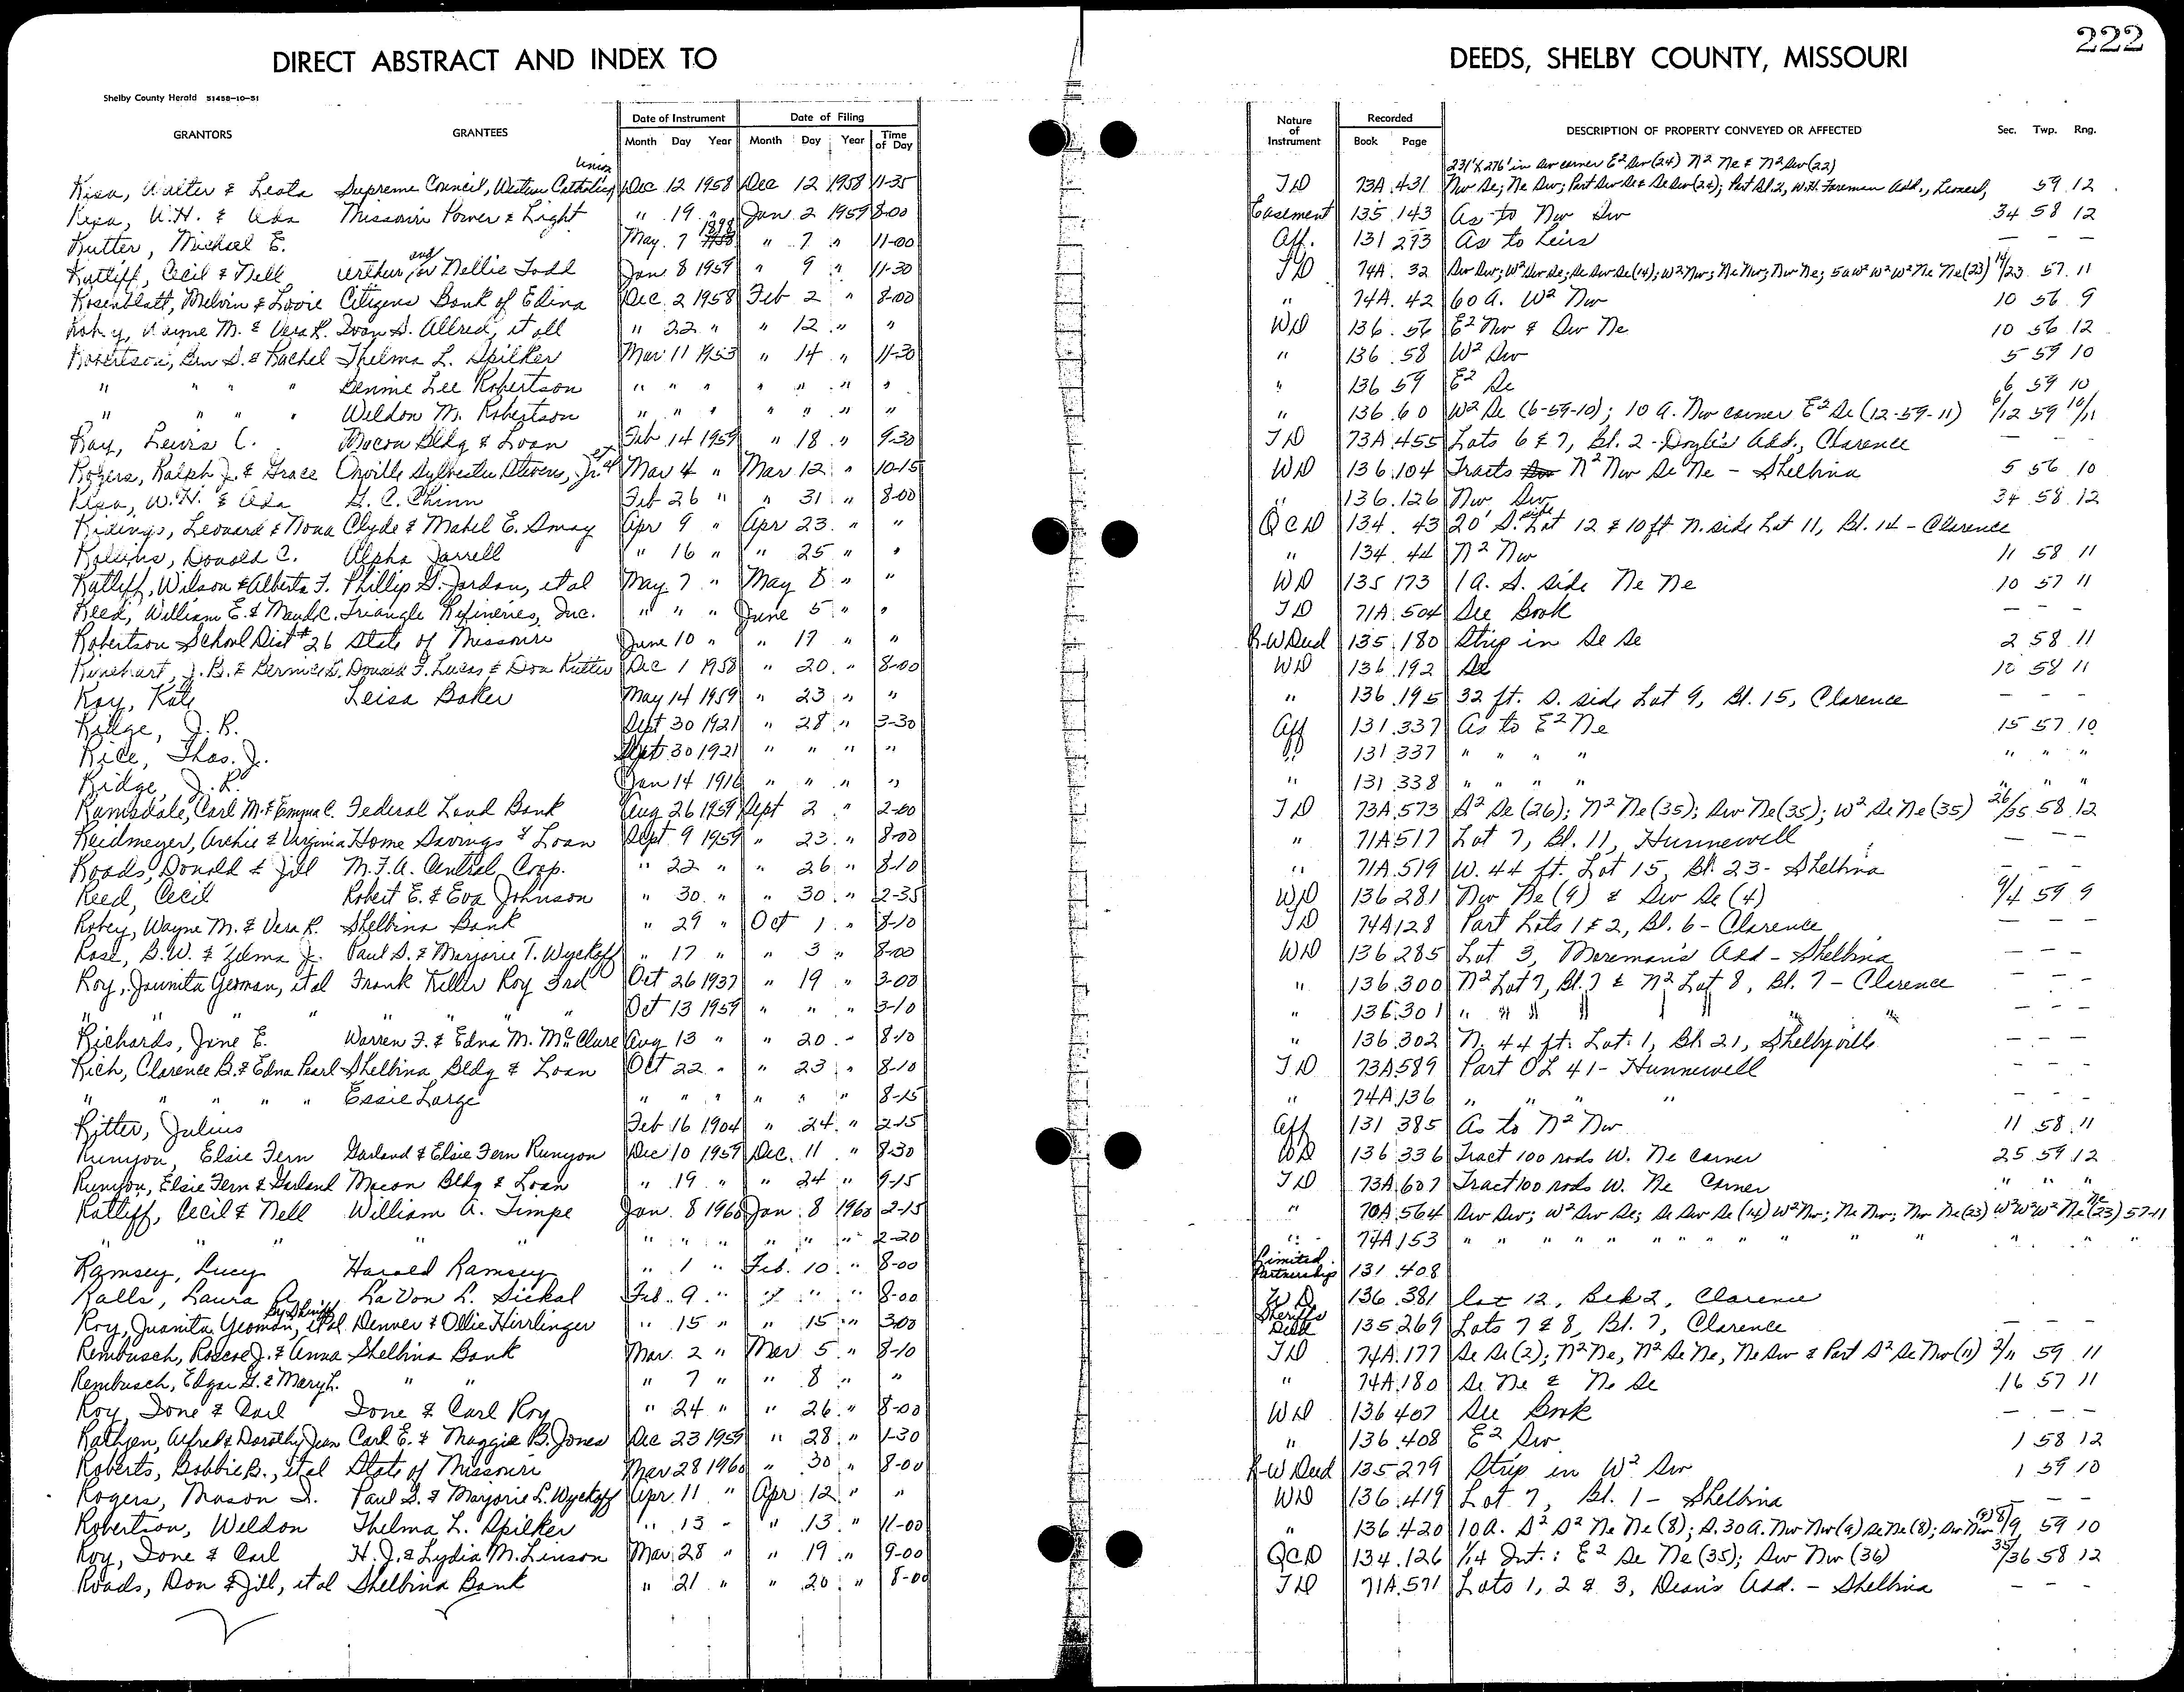 222
DIRECT ABSTRACT AND INDEX TO DEEDS, SHELBY COUNTY, MISSOURI
Shelby County Herald 51458-10-51
GRANTORS GRANTEES Date of Instrument Date of Filing Nature of Instrument Recorded DESCRIPTION OF PROPERTY CONVEYED OR AFFECTED Sec. Twp. Rng.
Month Day Year Month Day Year Time of Day Book Page
Union 231'X276' in Sw corner E² Sw (24) N² Ne & N² Sw (22)
Walter & Leota Supreme Council, Western Catholic Dec 12 1958 Dec 12 1958 11-35 TD 73A 431 Nw Se; Ne Sw; Part Sw Se & Se Sw (24); Part Bl. 2, W.H. Foreman Add., Leonard, 59 12
& Ada Missouri Power & Light " 19 " Jan 2 1959 8-00 Easement 135 143 As to Nw Sw 34 58 12
Rutter, Michael E. May 7 1898 " 7 " 11-00 Aff. 131 293 As to heirs — — —
Ratliff, Cecil & Nell Arthur and/or Nellie Todd Jan 8 1959 " 9 " 11-30 TD 74A 32 Sw Sw; W² Sw Se; Se Sw Se (14); W² Nw; Ne Nw; Nw Ne; 5a W² W² W² Ne Ne (23) 14/23 57 11
Rosenblatt, Melvin & Lovie Citizens Bank of Edina Dec 2 1958 Feb 2 " 8-00 " 74A 42 60 A. W² Nw 10 56 9
Robey, Wayne M. & Vera R. Ivan S. Allred, et all " 22 " " 12 " " WD 136 56 E² Nw & Sw Ne 10 56 12
Robertson, Ben S. & Rachel Thelma L. Spilker Mar 11 1953 " 14 " 11-30 " 136 58 W² Sw 5 59 10
" " " " Dennie Lee Robertson " " " " " " " " 136 59 E² Se 6 59 10
" " " " Weldon M. Robertson " " " " " " " " 136 60 W² Se (6-59-10); 10 A. Nw corner E² Se (12-59-11) 6/12 59 10/11
Ray, Lewis C. Macon Bldg & Loan Feb 14 1959 " 18 " 9-30 TD 73A 455 Lots 6 & 7, Bl. 2 - Doyle's Add., Clarence — — —
Rogers, Ralph J. & Grace Orville Sylvester Stevens, Jr et al Mar 4 " Mar 12 " 10-15 WD 136 104 Tracts N² Nw Se Ne - Shelbina 5 56 10
W.H. & Ada G. C. Chinn Feb 26 " " 31 " 8-00 " 136 126 Nw Sw 34 58 12
Ridings, Leonard & Nona Clyde & Mabel E. Smay Apr 9 " Apr 23 " " QCD 134 43 20' S. side Lot 12 & 10 ft N. side Lot 11, Bl. 14 - Clarence
Rollins, Donald C. Alpha Jarrell " 16 " " 25 " " " 134 44 N² Nw 11 58 11
Ratliff, Wilson & Alberta F. Phillip G. Jordan, et al May 7 " May 8 " " WD 135 173 1 A. S. side Ne Ne 10 57 11
Reed, William E. & Maud C. Triangle Refineries, Inc. " " " June 5 " " TD 71A 504 See Book — — —
Robertson School Dist #26 State of Missouri June 10 " " 17 " " R-W Deed 135 180 Strip in Se Se 2 58 11
Rinehart, J. B. & Bernice L. Donald F. Lucas & Don Rutter Dec 1 1958 " 20 " 8-00 WD 136 192 Se 10 58 11
Roy, Kate Leisa Baker May 14 1959 " 23 " " " 136 195 32 ft. S. side Lot 9, Bl. 15, Clarence — — —
Ridge, J. R. Sept 30 1921 " 28 " 3-30 Aff 131 337 As to E² Ne 15 57 10
Rice, Thos. J. Sept 30 1921 " " " " " 131 337 " " " " " " "
Ridge, J. R. Jan 14 1916 " " " " " 131 338 " " " " " " "
Ramsdale, Carl M. & Emma C. Federal Land Bank Aug 26 1959 Sept 2 " 2-00 TD 73A 573 S² Se (26); N² Ne (35); Sw Ne (35); W² Se Ne (35) 26/35 58 12
Reidmeyer, Archie & Virginia Home Savings & Loan Sept 9 1959 " 23 " 8-00 " 71A 517 Lot 7, Bl. 11, Hunnewell — — —
Roads, Donald & Jill M.F.A. Central Coop. " 22 " " 26 " 8-10 " 71A 519 W. 44 ft. Lot 15, Bl. 23 - Shelbina — — —
Reed, Cecil Robert E. & Eva Johnson " 30 " " 30 " 2-35 WD 136 281 Nw Ne (9) & Sw Se (4) 9/4 59 9
Robey, Wayne M. & Vera R. Shelbina Bank " 29 " Oct 1 " 8-10 TD 74A 128 Part Lots 1 & 2, Bl. 6 - Clarence — — —
Rose, B.W. & Zelma J. Paul S. & Marjorie T. Wyckoff " 17 " " 3 " 8-00 WD 136 285 Lot 3, Moreman's Add - Shelbina — — —
Roy, Juanita Yeoman, et al Frank Keller Roy 3rd Oct 26 1937 " 19 " 3-00 " 136 300 N² Lot 7, Bl. 7 & N² Lot 8, Bl. 7 - Clarence — — —
" " " " " " Oct 13 1959 " " " 3-10 " 136 301 " " " " " — — —
Richards, June E. Warren F. & Edna M. McClure Aug 13 " " 20 " 8-10 " 136 302 N. 44 ft. Lot 1, Bl. 21, Shelbyville — — —
Rich, Clarence B. & Edna Pearl Shelbina Bldg & Loan Oct 22 " " 23 " 8-10 TD 73A 589 Part OL 41 - Hunnewell — — —
" " " " " Essie Large " " " " " " 8-15 " 74A 136 " " " " — — —
Ritter, Julius Feb 16 1904 " 24 " 2-15 Aff 131 385 As to N² Nw 11 58 11
Runyon, Elsie Fern Garland & Elsie Fern Runyon Dec 10 1959 Dec. 11 " 8-30 WD 136 336 Tract 100 rods W. Ne corner 25 59 12
Runyon, Elsie Fern & Garland Macon Bldg & Loan " 19 " " 24 " 9-15 TD 73A 607 Tract 100 rods W. Ne Corner " " "
Ratliff, Cecil & Nell William A. Timpe Jan. 8 1960 Jan. 8 1960 2-15 " 70A 564 Sw Sw; W² Sw Se; Se Sw Se (14) W² Nw; Ne Nw; Nw Ne (23) W² W² W² Ne Ne (23) 57-11
" " " " " " " " " " 2-20 " 74A 153 " " " " " " " " " " " "
Ramsey, Lucy Harold Ramsey " 1 " Feb. 10 " 8-00 Limited Partnership 131 408
Ralls, Laura A. LaVon L. Sickal Feb. 9 " " " " 8-00 WD 136 381 Lot 12, Blk 2, Clarence
Roy, Juanita Yeoman, et al. by Sheriff Denver & Ollie Hirrlinger " 15 " " 15 " 3:00 Sheriffs Deed 135 269 Lots 7 & 8, Bl. 7, Clarence — — —
Rembusch, Roscoe J. & Anna Shelbina Bank Mar. 2 " Mar 5 " 8-10 TD 74A 177 Se Se (2); N² Ne, N² Se Ne, Ne Sw & Part S² Se Nw (11) 2/11 59 11
Rembusch, Edgar G. & Mary L. " " " 7 " " 8 " " " 74A 180 Se Ne & Ne Se 16 57 11
Roy, Ione & Carl Ione & Carl Roy " 24 " " 26 " 8-00 WD 136 407 See Book — — —
Rathjen, Alfred & Dorothy Jean Carl E. & Maggie B. Jones Dec 23 1959 " 28 " 1-30 " 136 408 E² Sw 1 58 12
Roberts, Bobbie B., et al State of Missouri Mar 28 1960 " 30 " 8-00 R-W Deed 135 279 Strip in W² Sw 1 59 10
Rogers, Mason I. Paul S. & Marjorie L. Wyckoff Apr. 11 " Apr 12 " " WD 136 419 Lot 7, Bl. 1 - Shelbina — — —
Robertson, Weldon Thelma L. Spilker " 13 " " 13 " 11-00 " 136 420 10A. S² S² Ne Ne (8); S. 30A. Nw Nw (9) Se Ne (8); Sw Nw (9) 8/9 59 10
Roy, Ione & Carl H. J. & Lydia M. Linson Mar 28 " " 19 " 9-00 QCD 134 126 1/14 Int.: E² Se Ne (35); Sw Nw (36) 35/36 58 12
Roads, Don & Jill, et al Shelbina Bank " 21 " " 20 " 8-00 TD 71A 571 Lots 1, 2 & 3, Dean's Add. - Shelbina — — —